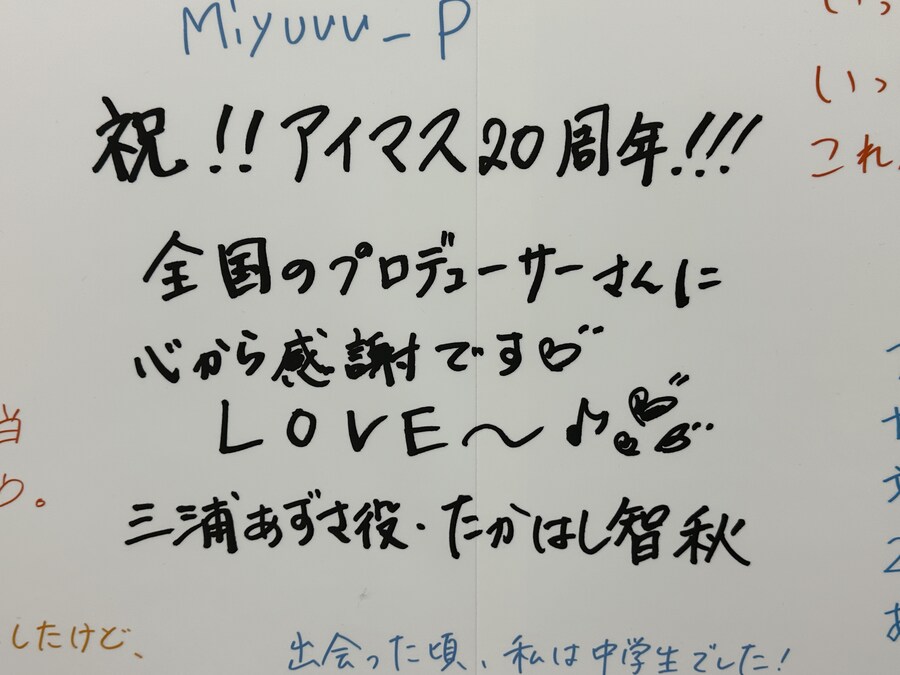 Miyuuu_P
いっ
祝!!アイマス20周年!!!
いっ
これ
全国のプロデューサーさんに
心から感謝です♡
LOVE～♪♡♡♡
当
り。
三浦あずさ役・たかはし智秋
したけど、
出会った頃、私は中学生でした!